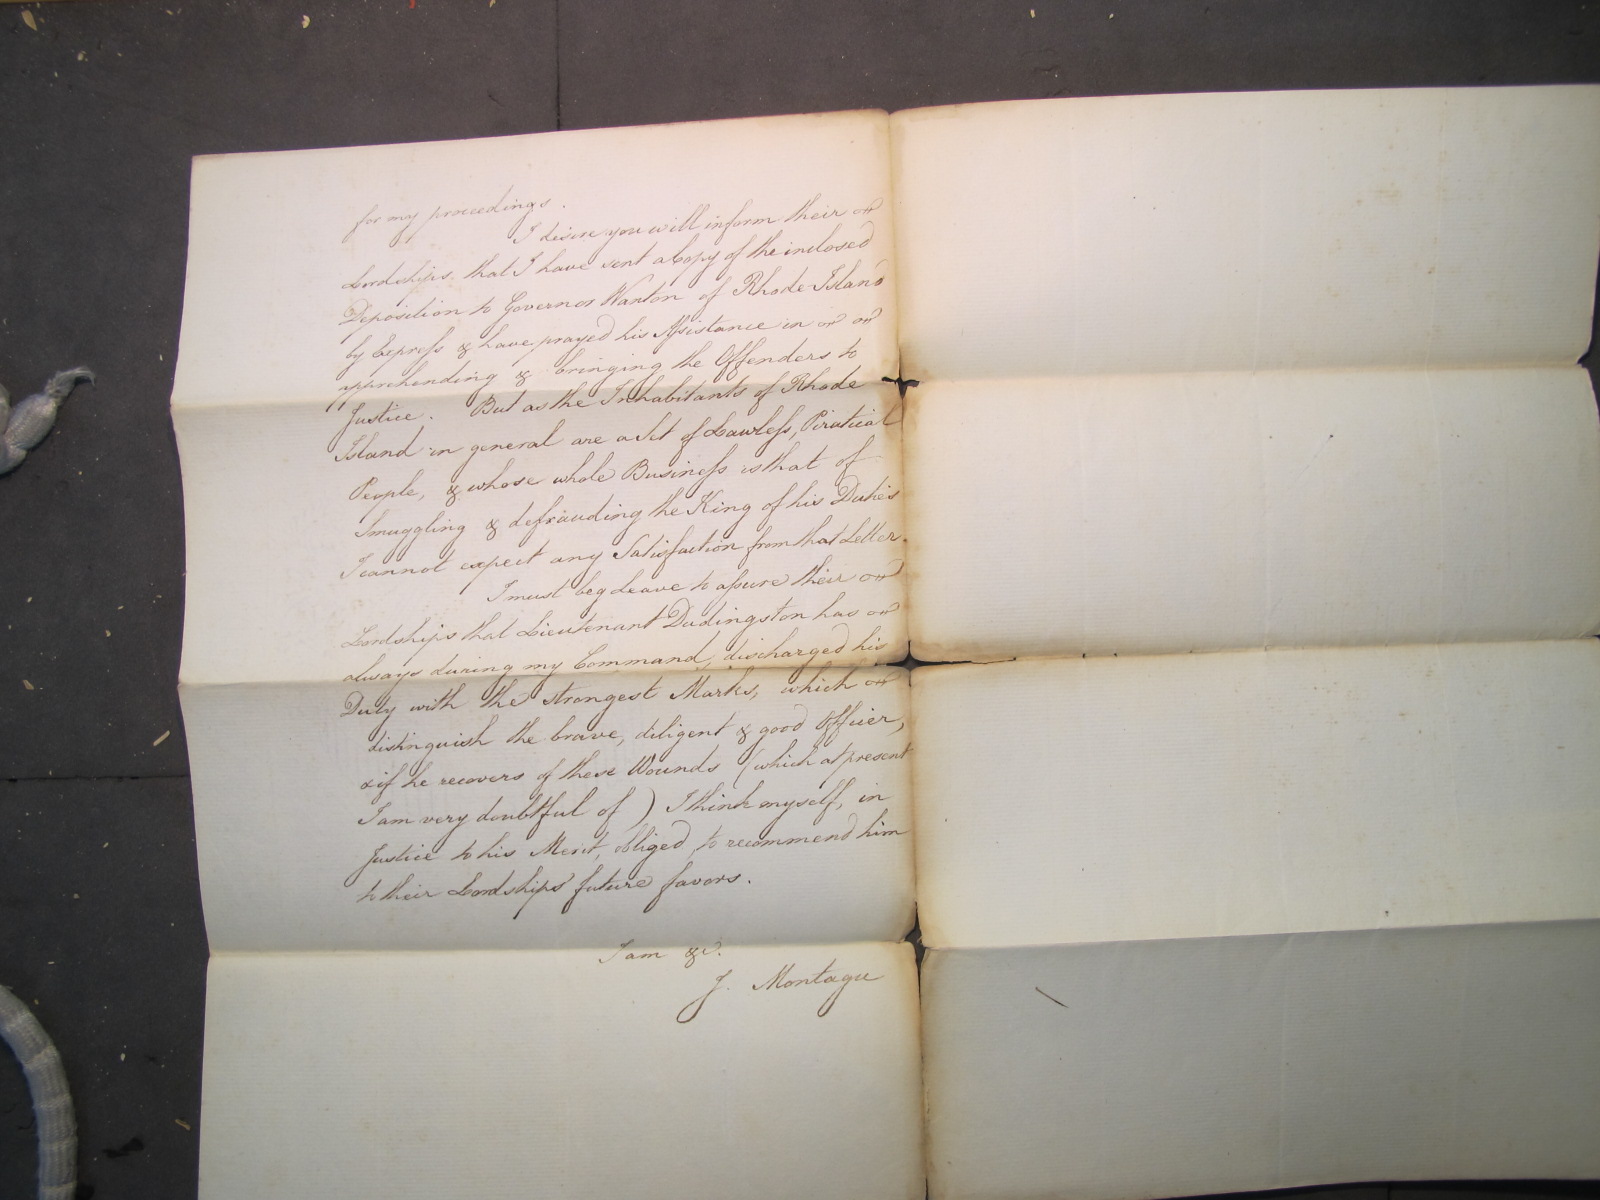 for my proceedings.
I desire you will inform their
Lordships that I have sent a Copy of the inclosed
Deposition to Governor Wanton of Rhode Island
by Express & have prayed his Assistance in
apprehending & bringing the Offenders to
Justice. But as the Inhabitants of Rhode
Island in general are a Set of Lawless, Piratical
People, & whose whole Business is that of
Smuggling & defrauding the King of his Duties
I cannot expect any Satisfaction from that Letter.
I must beg Leave to assure their
Lordships that Lieutenant Dudingston has
always during my Command, discharged his
Duty with the strongest Marks, which
distinguish the brave, diligent & good Officer,
& if he recovers of these Wounds (which at present
I am very doubtful of) I think myself, in
Justice to his Merit, obliged, to recommend him
to their Lordships' future favors.
I am &c.
J. Montagu